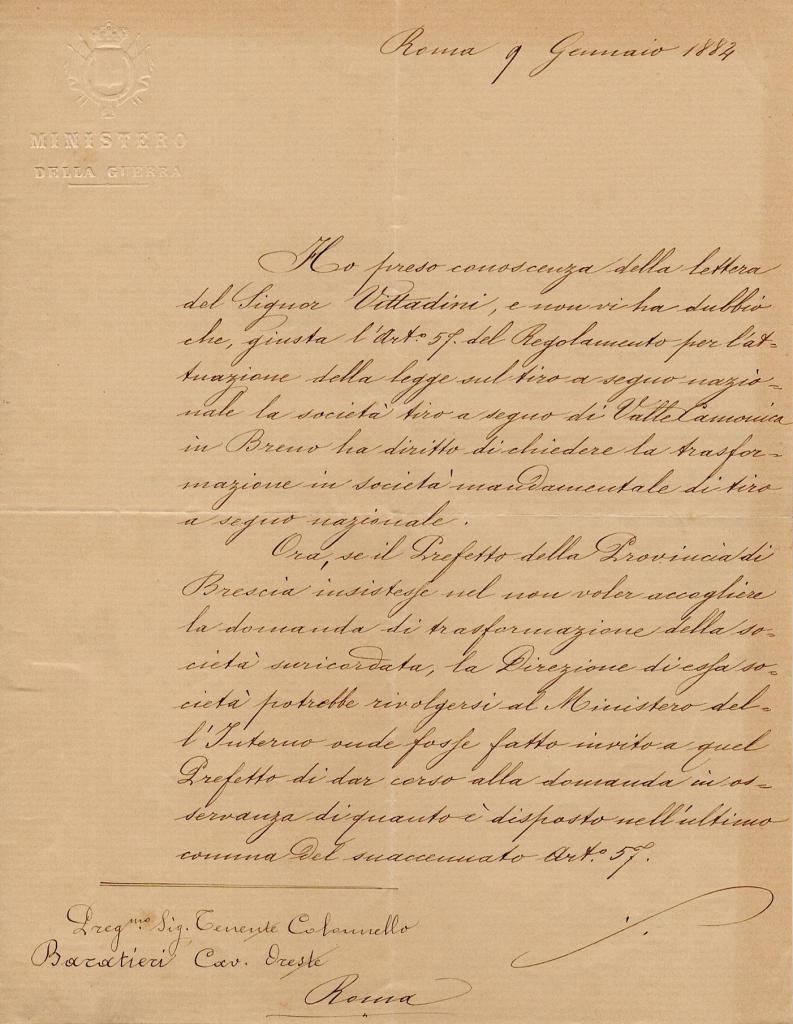 Roma 9 Gennaio 1884
MINISTERO
DELLA GUERRA
Ho preso conoscenza della lettera
del Signor Vittadini, e non vi ha dubbio
che, giusta l'Art.° 57. del Regolamento per l'at-
tuazione della legge sul tiro a segno nazio-
nale la società tiro a segno di Valle Camonica
in Breno ha diritto di chiedere la trasfor-
mazione in società mandamentale di tiro
a segno nazionale.
Ora, se il Prefetto della Provincia di
Brescia insistesse nel non voler accogliere
la domanda di trasformazione della so-
cietà suricordata, la Direzione di essa so-
cietà potrebbe rivolgersi al Ministero del-
l'Interno onde fosse fatto invito a quel
Prefetto di dar corso alla domanda in os-
servanza di quanto è disposto nell'ultimo
comma del suaccennato Art.° 57.
Preg.mo Sig. Tenente Colonnello
Baratieri Cav. Oreste
Roma